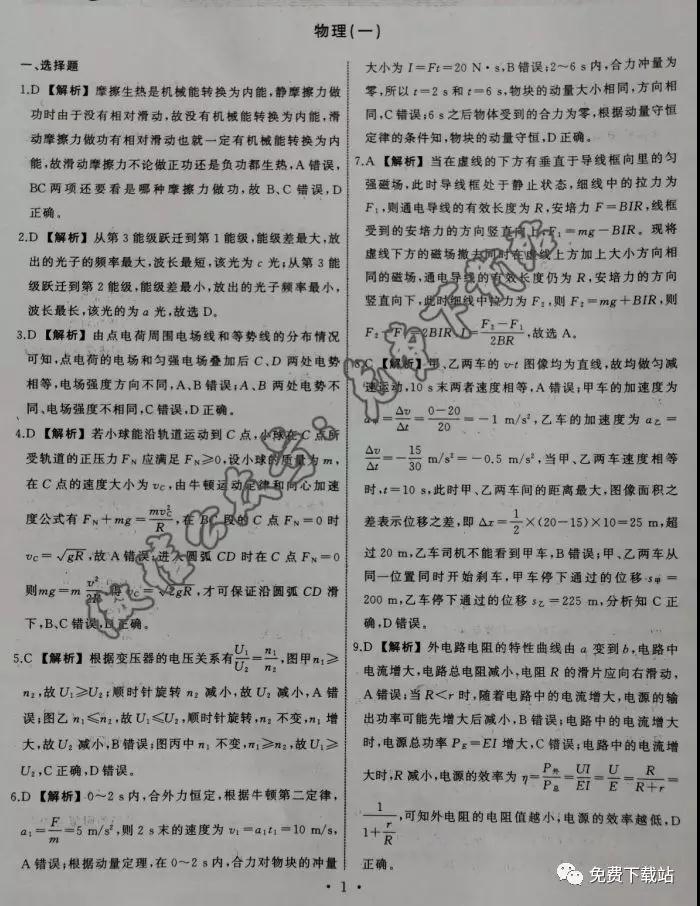 物理(一)
一、选择题
1.D 【解析】摩擦生热是机械能转换为内能,静摩擦力做
功时由于没有相对滑动,故没有机械能转换为内能,滑
动摩擦力做功有相对滑动也就一定有机械能转换为内
能,故滑动摩擦力不论做正功还是负功都生热,A 错误,
BC 两项还要看是哪种摩擦力做功,故 B、C 错误,D
正确。
2.D 【解析】从第 3 能级跃迁到第 1 能级,能级差最大,放
出的光子的频率最大,波长最短,该光为 c 光;从第 3 能
级跃迁到第 2 能级,能级差最小,放出的光子频率最小,
波长最长,该光的为 a 光,故选 D。
3.D 【解析】由点电荷周围电场线和等势线的分布情况
可知,点电荷的电场和匀强电场叠加后 C、D 两处电势
相等,电场强度方向不同,A、B 错误;A、B 两处电势不
同、电场强度不相同,C 错误,D 正确。
4.D 【解析】若小球能沿轨道运动到 C 点,小球在 C 点所
受轨道的正压力 FN 应满足 FN≥0,设小球的质量为 m,
在 C 点的速度大小为 vC,由牛顿运动定律和向心加速
度公式有 FN+mg=mvC²/R,在 BC 段的 C 点 FN=0 时
vC=√gR,故 A 错误;进入圆弧 CD 时在 C 点 FN=0
则mg=m v²/2R,得 vC=√2gR,才可保证沿圆弧 CD 滑
下,B、C 错误,D 正确。
5.C 【解析】根据变压器的电压关系有U1/U2=n1/n2,图甲n1≥
n2,故 U1≥U2;顺时针旋转 n2 减小,故 U2 减小,A 错
误;图乙 n1≤n2,故 U1≤U2,顺时针旋转,n2 不变,n1 增
大,故 U2 减小,B 错误;图丙中 n1 不变,n1≥n2,故 U1≥
U2,C 正确,D 错误。
6.D 【解析】0~2 s 内,合外力恒定,根据牛顿第二定律,
a1=F/m=5 m/s²,则 2 s 末的速度为 v1=a1t1=10 m/s,
A 错误;根据动量定理,在 0~2 s 内,合力对物块的冲量
大小为 I=Ft=20 N·s,B 错误;2~6 s 内,合力冲量为
零,所以 t=2 s 和 t=6 s,物块的动量大小相同,方向相
同,C 错误;6 s 之后物体受到的合力为零,根据动量守恒
定律的条件知,物块的动量守恒,D 正确。
7.A 【解析】当在虚线的下方有垂直于导线框向里的匀
强磁场,此时导线框处于静止状态,细线中的拉力为
F1,则通电导线的有效长度为 R,安培力 F=BIR,线框
受到的安培力的方向竖直向上,F1=mg-BIR。现将
虚线下方的磁场撤去同时在虚线上方加上大小方向相
同的磁场,通电导线的有效长度仍为 R,安培力的方向
竖直向下,此时细线中拉力为 F2,则 F2=mg+BIR,则
F2-F1=2BIR,I=F2-F1/2BR,故选 A。
8.C 【解析】甲、乙两车的 v-t 图像均为直线,故均做匀减
速运动,10 s 末两者速度相等,A 错误;甲车的加速度为
a甲=Δv/Δt=0-20/20=-1 m/s²,乙车的加速度为 a乙=
Δv/Δt=-15/30 m/s²=-0.5 m/s²,当甲、乙两车速度相等
时,t=10 s,此时甲、乙两车间的距离最大,图像面积之
差表示位移之差,即 Δx=1/2×(20-15)×10=25 m,超
过 20 m,乙车司机不能看到甲车,B 错误;甲、乙两车从
同一位置同时开始刹车,甲车停下通过的位移 s甲=
200 m,乙车停下通过的位移 s乙=225 m,分析知 C 正
确,D 错误。
9.D 【解析】外电路电阻的特性曲线由 a 变到 b,电路中
电流增大,电路总电阻减小,电阻 R 的滑片应向右滑动,
A 错误;当 R<r 时,随着电路中的电流增大,电源的输
出功率可能先增大后减小,B 错误;电路中的电流增大
时,电源总功率 PE=EI 增大,C 错误;电路中的电流增
大时,R 减小,电源的效率为 η=P外/P总=UI/EI=U/E=R/R+r=
1/1+r/R,可知外电阻的电阻值越小,电源的效率越低,D
正确。
·1·
免费下载站